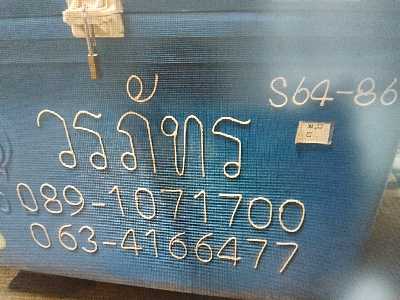 S64-86
วรภัทร
089-1071700
063-4166477